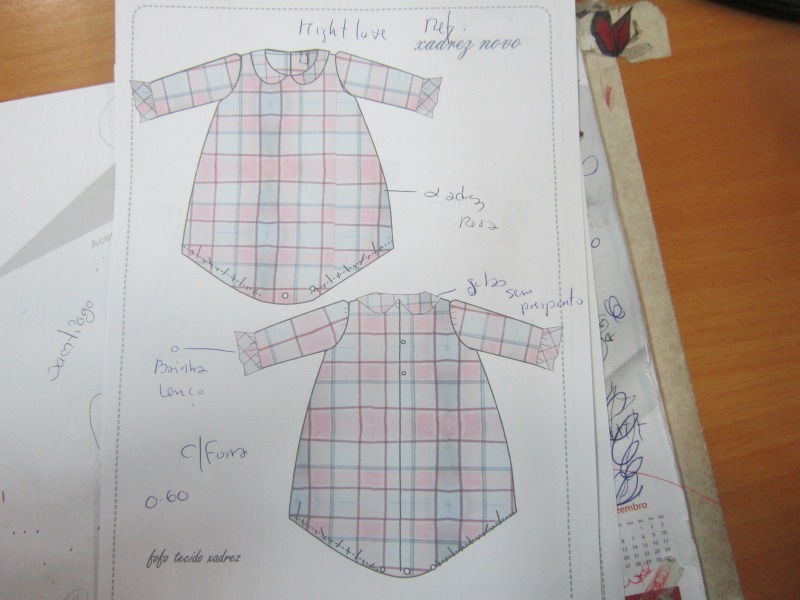 Might love
Ref.
xadrez novo
xadrez
Rosa
golas sem
presponto
Bainha
lenço
c/Forra
0.60
fofo tecido xadrez
zembro